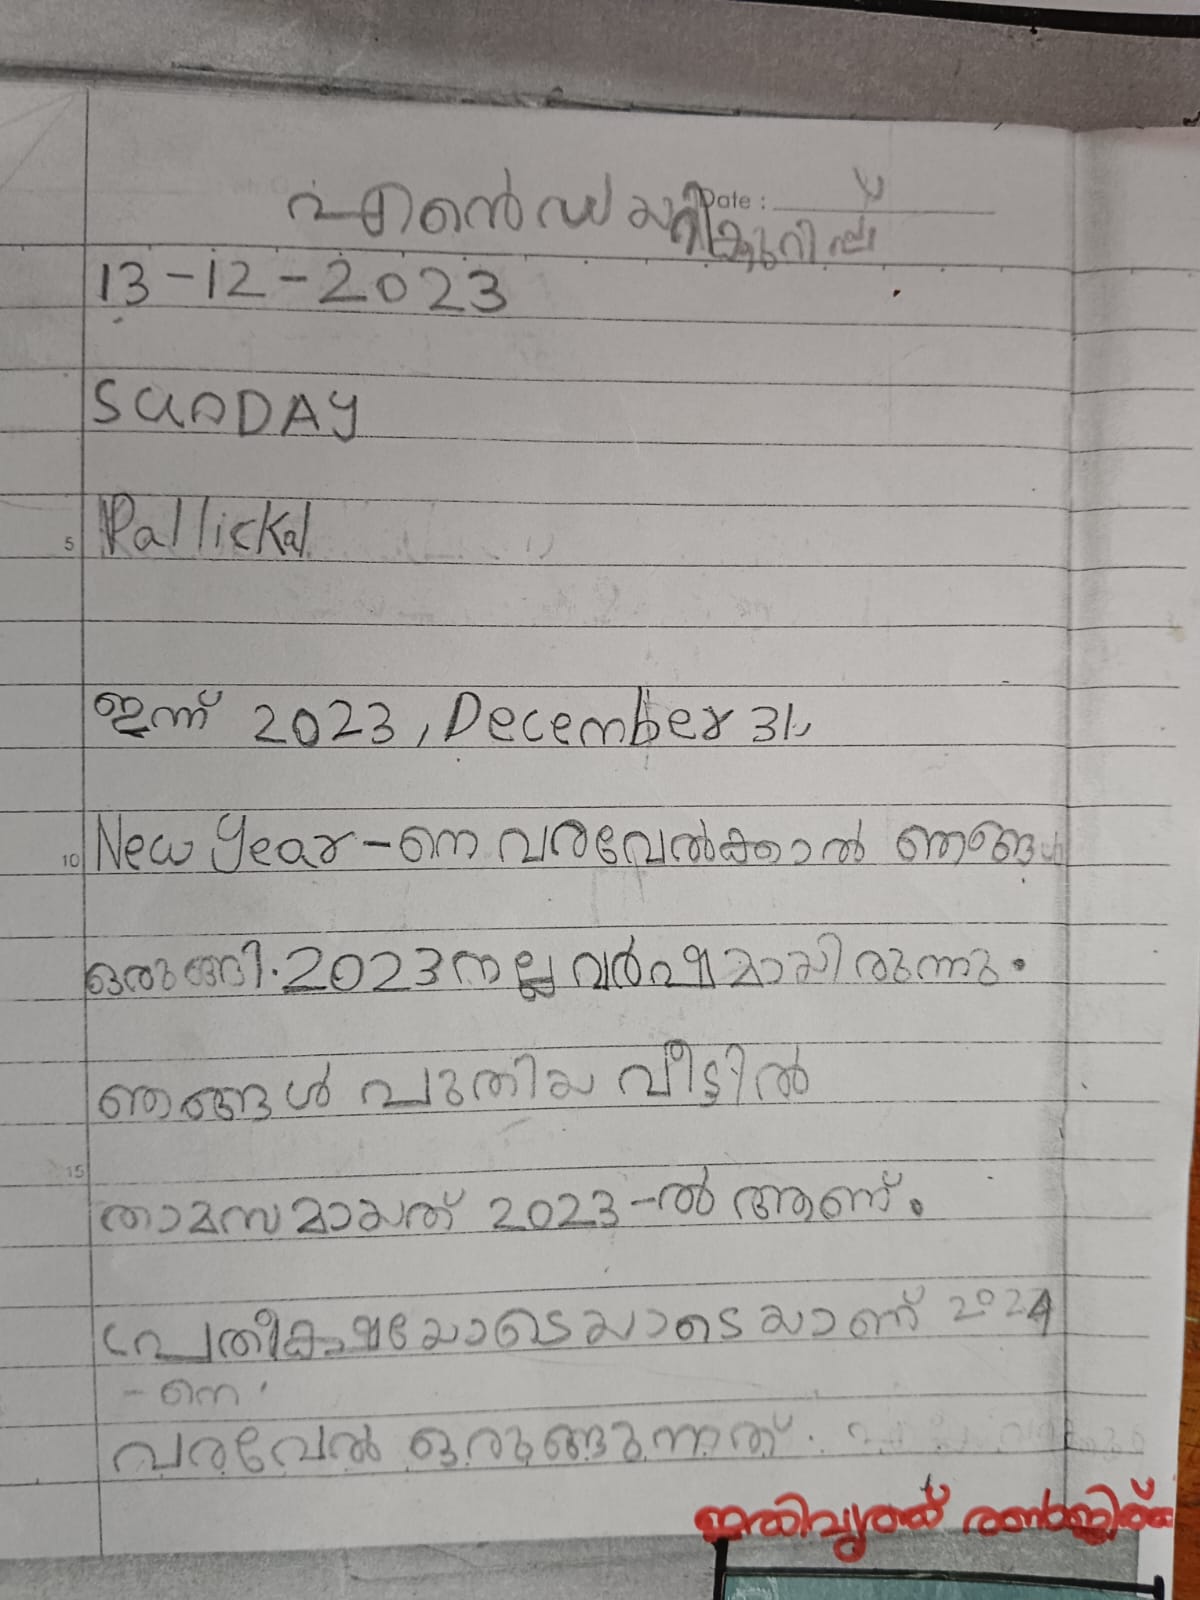 Date :
എൻെറ ഡയറിക്കുറിപ്പ്
13-12-2023
SUNDAY
Pallickal
5
ഇന്ന് 2023, December 31,
New Year-നെ വരവേൽക്കാൽ ഞങ്ങൾ
10
ഒരുങ്ങി. 2023 നല്ല വർഷമായിരുന്നു.
ഞങ്ങൾ പുതിയ വീട്ടിൽ
15
താമസമായത് 2023-ൽ ആണ്.
2024
-നെ
വരവേൽ ഒരുങ്ങുന്നത്.
ഇതിവൃത്ത്